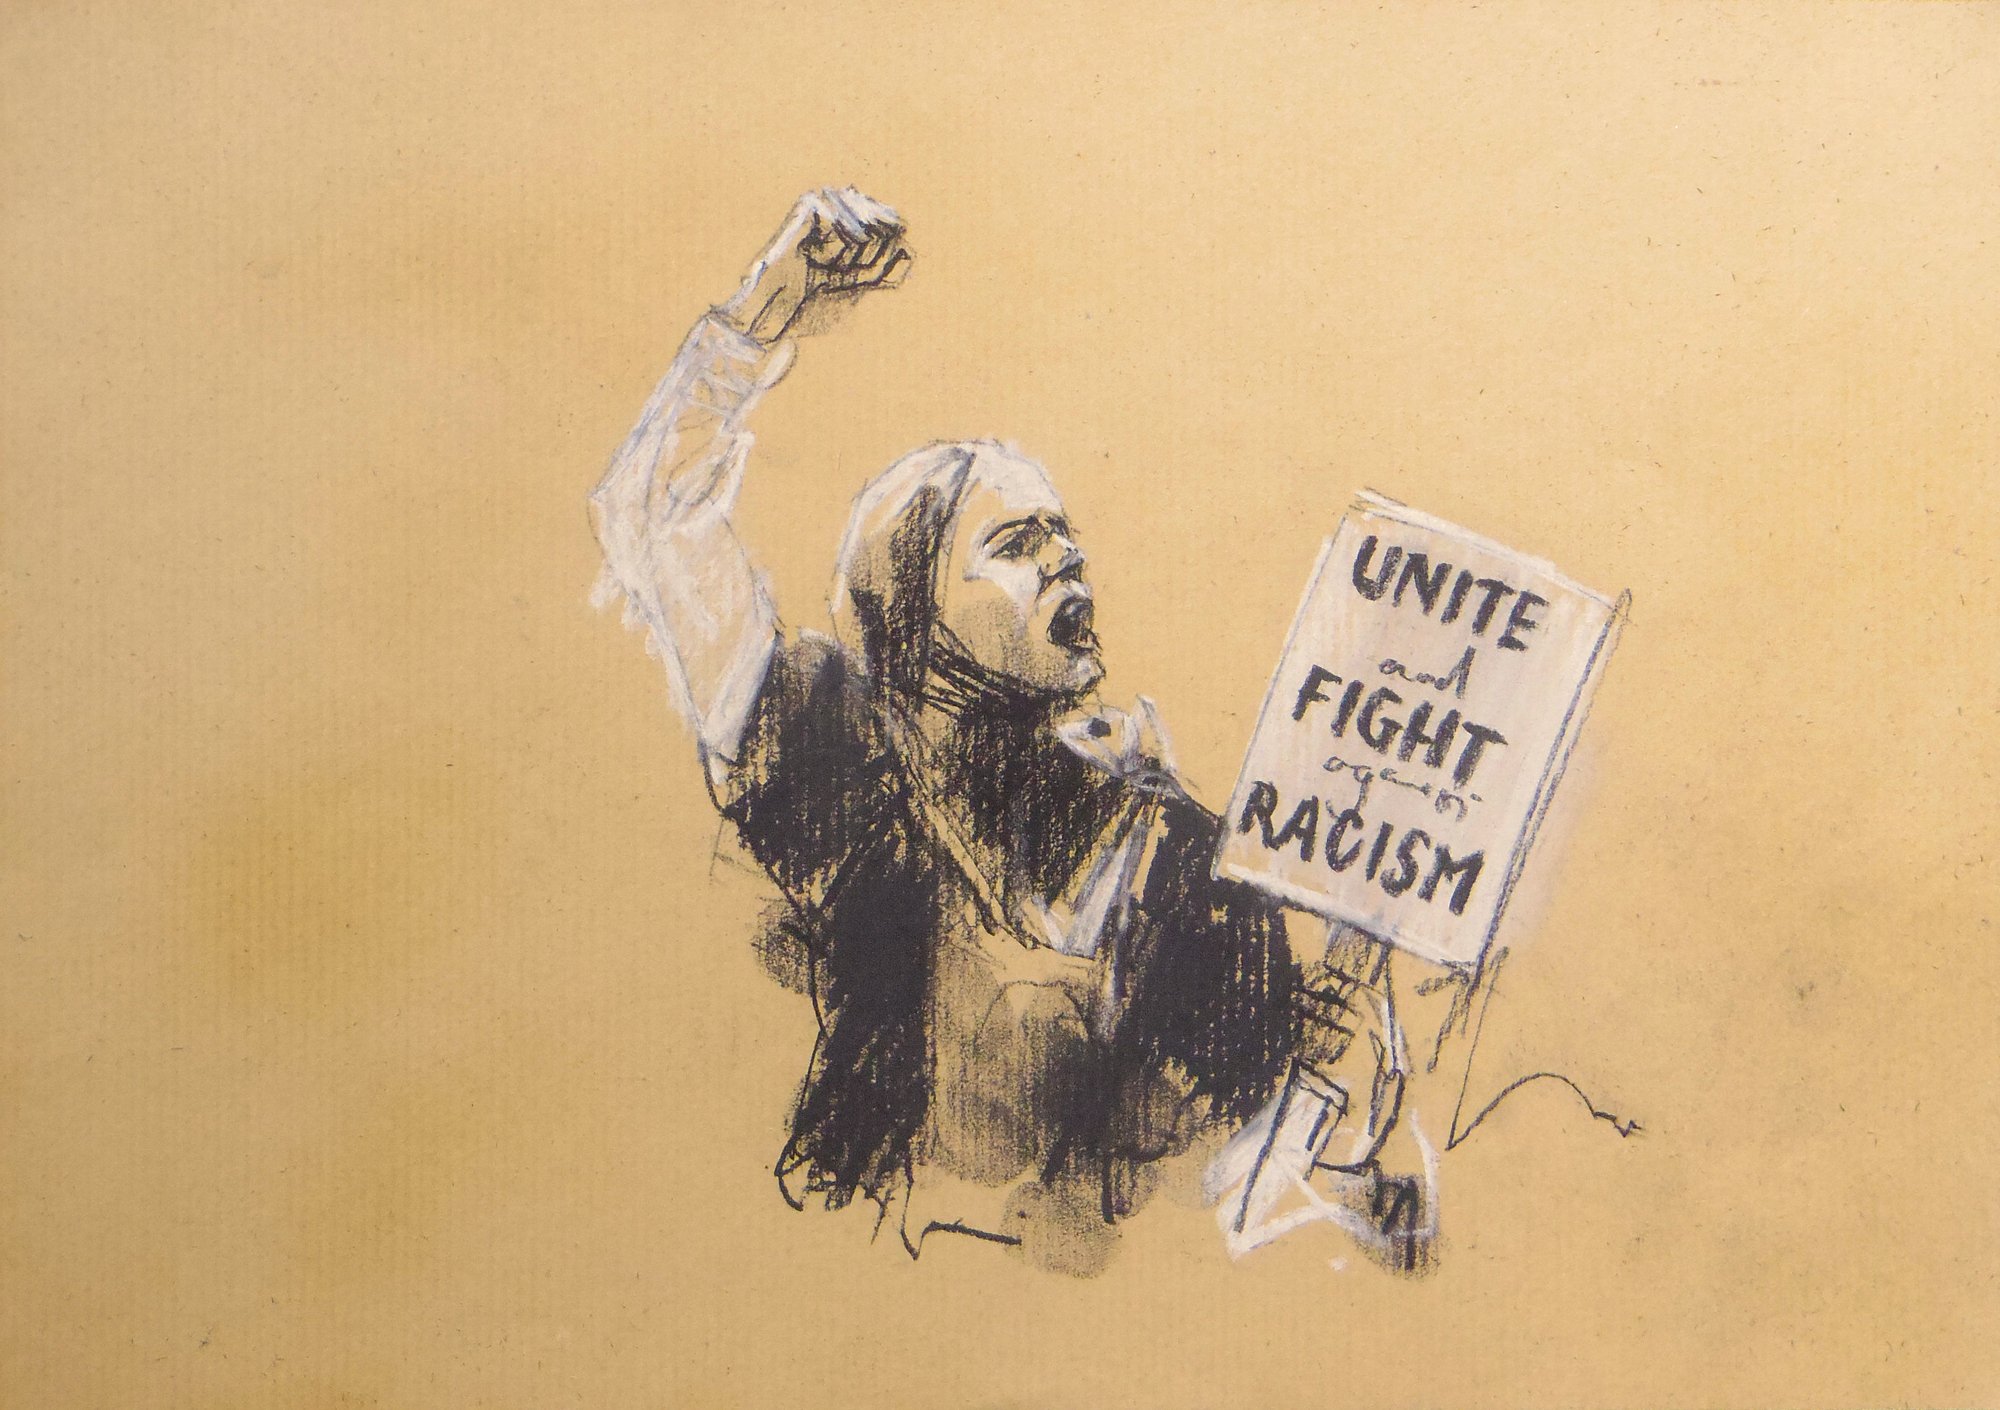 UNITE
and
FIGHT
against
RACISM